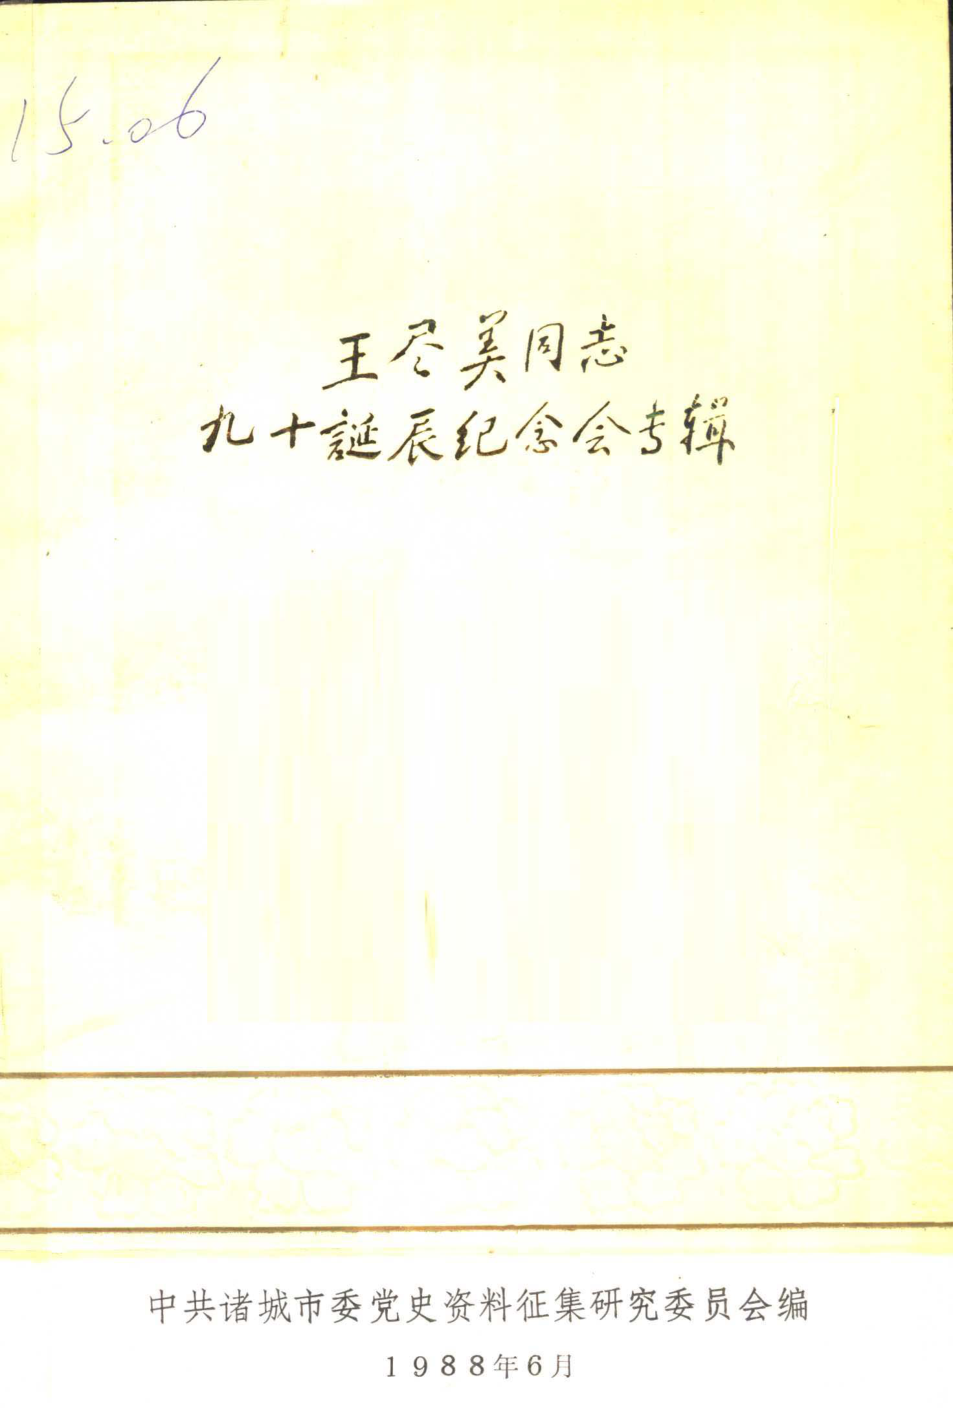 15.06
王尽美同志
九十誕辰纪念会专辑
中共诸城市委党史资料征集研究委员会编
1988年6月